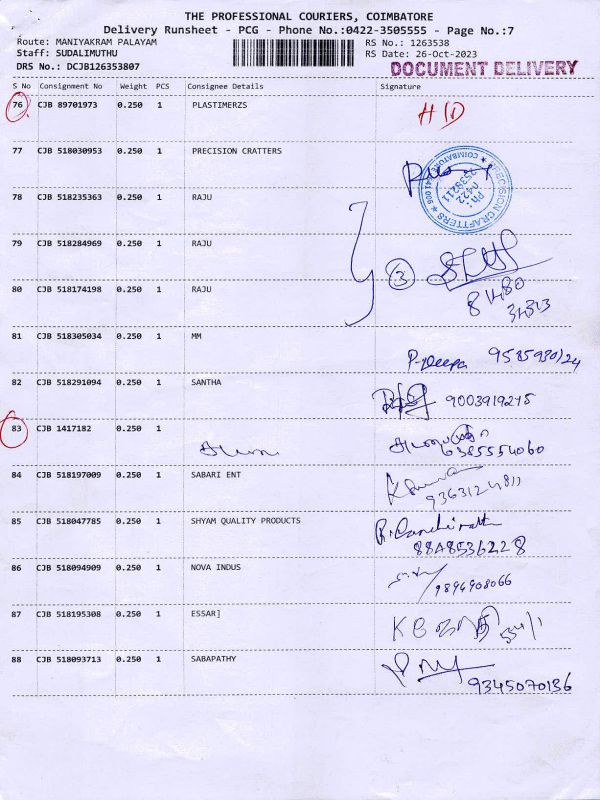 THE PROFESSIONAL COURIERS, COIMBATORE
Delivery Runsheet - PCG - Phone No.:0422-3505555 - Page No.:7
Route: MANIYAKRAM PALAYAM RS No.: 1263538
Staff: SUDALIMUTHU RS Date: 26-Oct-2023
DRS No.: DCJB126353807 DOCUMENT DELIVERY
S No Consignment No Weight PCS Consignee Details Signature
76 CJB 89701973 0.250 1 PLASTIMERZS
77 CJB 518030953 0.250 1 PRECISION CRATTERS
PRECISION CRAFTTERS
COIMBATORE
Ph :
0422
2538211
78 CJB 518235363 0.250 1 RAJU
79 CJB 518284969 0.250 1 RAJU
3
80 CJB 518174198 0.250 1 RAJU
81 CJB 518305034 0.250 1 MM
P. Deepa
82 CJB 518291094 0.250 1 SANTHA
9003919215
83 CJB 1417182 0.250 1
6385554060
84 CJB 518197009 0.250 1 SABARI ENT
85 CJB 518047785 0.250 1 SHYAM QUALITY PRODUCTS
8848536228
86 CJB 518094909 0.250 1 NOVA INDUS
9894908066
87 CJB 518195308 0.250 1 ESSAR]
88 CJB 518093713 0.250 1 SABAPATHY
9345070136